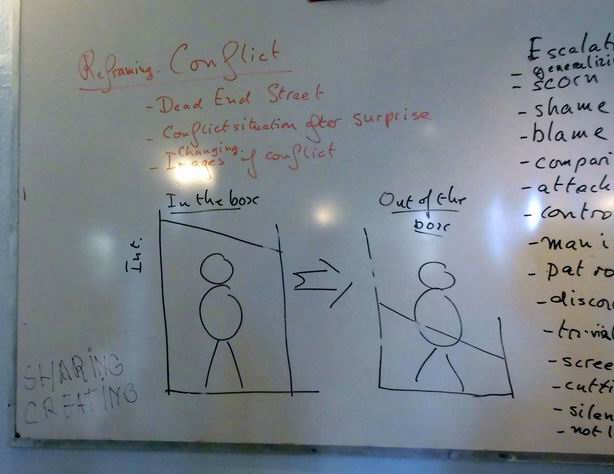 Reframing Conflict
- Dead End Street
- Conflict situation after surprise
- Changing Images of conflict
In the box
Int.
Out of the
box
SHARING
CREATING
Escalat
- generalizi
- scorn
- shame
- blame
- compari
- attack
- contro
- mani
- patro
- discou
- trivial
- scree
- cutti
- silen
- not l